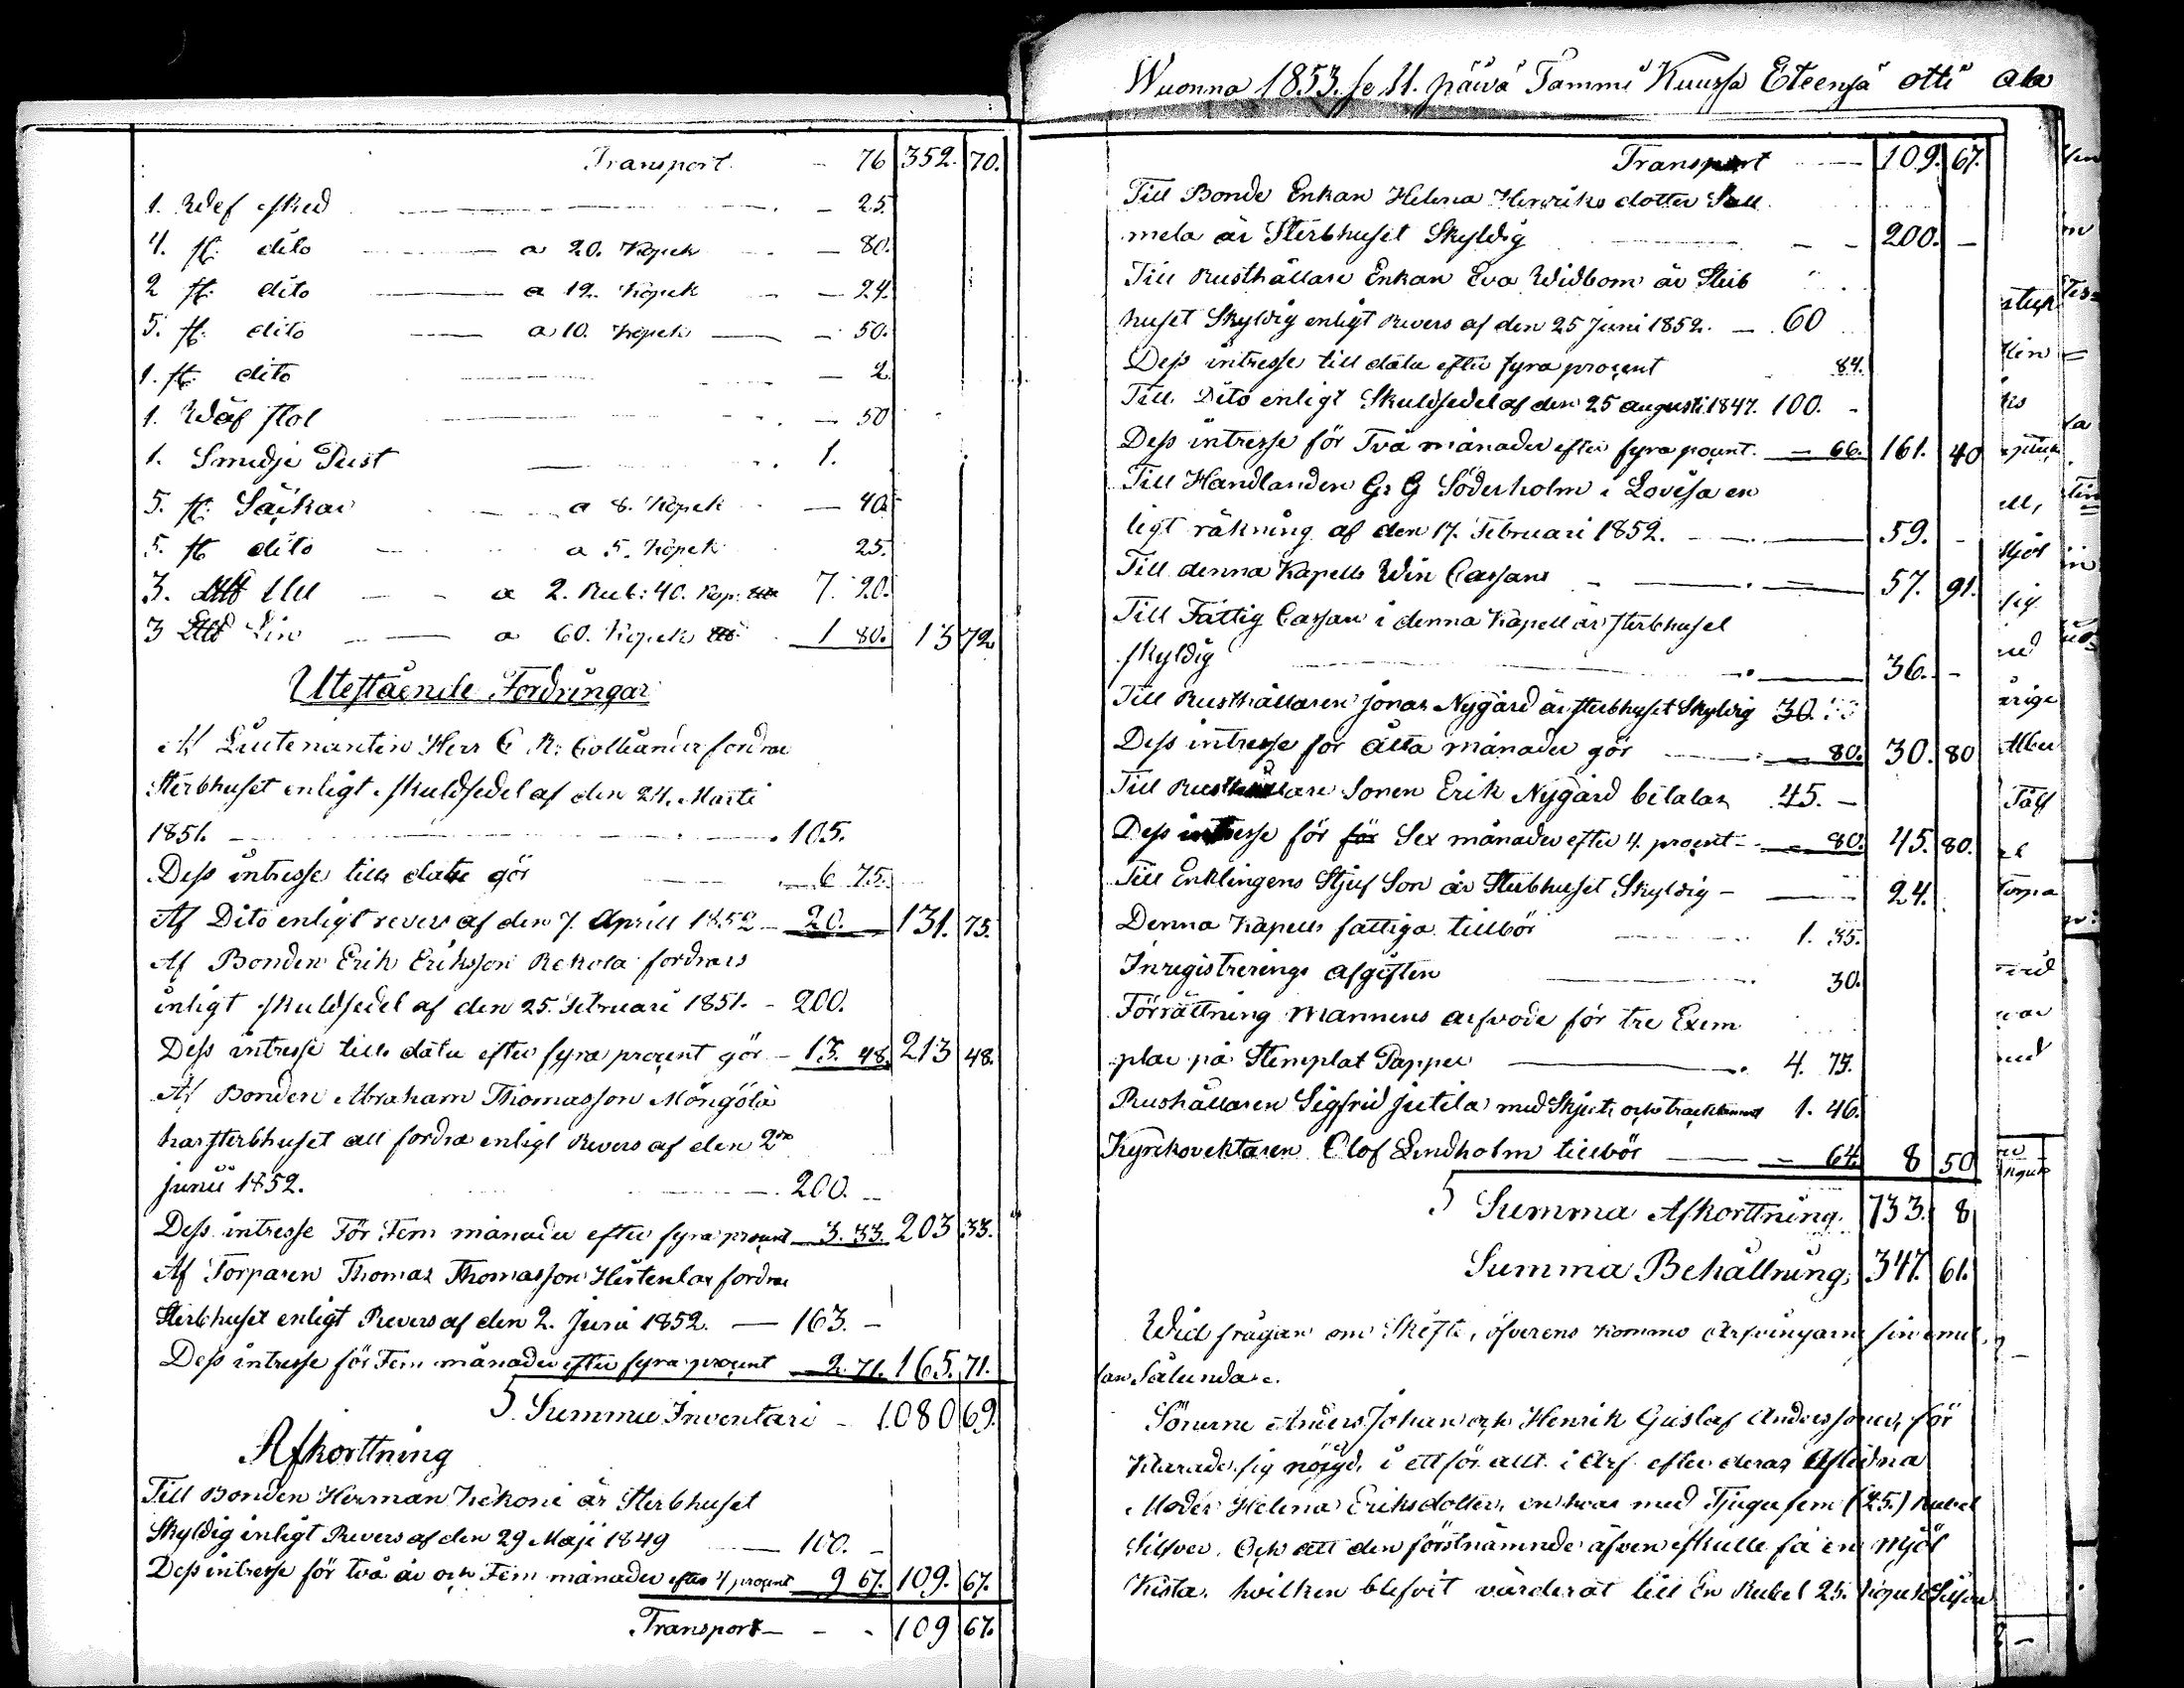 Transport - 76 352. 70.
1. Wef sked - 25.
4. st. dito a 20. Kopek - 80.
2 st. dito a 12. Kopek - 24.
5. st. dito a 10. Kopek - 50.
1. st. dito - 2.
1. Wäf stol - 50
1. Smidje Pust 1.
5. st. Säckar a 8. Kopek - 40.
5. st dito a 5. Kopek 25.
3. Ull a 2. Rub: 40. Kop. 7. 20.
3 Lin a 60. Kopek 1 80. 13 72.
Utestående Fordringar
Af Lieutenanten Herr C. R: fordrar
Sterbhuset enligt skuldsedel af den 24. Marti
1851. 105.
Dess intresse till datu gör 6 75.
Af Dito enligt revers af den 7. Aprill 1852 - 20. 131. 75.
Af Bonden Erik Eriksson Rekola fordrars
inligt skuldsedel af den 25. Februari 1851. - 200.
Dess intresse till datu efter fyra procent gör - 13. 48. 213 48.
Af Bonden Abraham Thomasson Möngölä
har sterbhuset att fordra enligt Revers af den 2
junii 1852. 200.
Dess intresse För Fem månader efter fyra procent 3. 33. 203 33.
Af Torparen Thomas Thomasson fordrar
Sterbhuset enligt Revers af den 2. Juni 1852. - 163. -
Dess intresse för Fem månader efter fyra procent 2. 71. 165. 71.
Summa Inventari - 1080 69.
Afkorttning
Till Bonden Herman Kekoni är Sterbhuset
Skyldig inligt Revers af den 29 Maji 1849 100. -
Dess intresse för två år och Fem månader efter 4 procent 9 67. 109. 67.
Transport - - - 109 67.
Wuonna 1853. se 11. päivä Tammi Kuussa Eteensä otti ala
Transport 109. 67.
Till Bonde Enkan Helena Henriks dotter
mela är Sterbhuset Skyldig - - 200. -
Till Rusthållare Enkan Eva Widbom är Sterb
huset Skyldig enligt Revers af den 25 Juni 1852. - 60
Dess intresse till datu efter fyra procent 84.
Till Dito enligt Skuldsedel af den 25 augusti 1847. 100. -
Dess intresse för Två månader efter fyra pocent. - 66. 161. 40
Till Handlanden G. G Söderholm i Lovisa en
ligt räkning af den 17. Februari 1852. 59. -
Till denna Kapells Win Cassans 57. 91.
Till Fattig Cassan i denna Kapell är sterbhuset
skyldig 36. -
Till Rusthållaren Jonas Nygård är sterbhuset Skyldig 30.
Dess intresse för åtta månader gör - 80. 30. 80
Till Rusthållare Sonen Erik Nygård betalas 45. -
Dess intresse för för Sex månader efter 4. procent - 80. 45. 80.
Till Enklingens Stjuf Son är Sterbhuset Skyldig - 24.
Denna Kapells fattiga tillbör 1. 35.
Inregistrerings afgiften 30.
Förrättning Mannens arfvode för tre Exem
plar på Stemplat Papper 4. 75.
Rushållaren Sigfrid Jutila med Skjuts och tracktament 1. 46.
Kyrkovektaren Olof Lindholm tillbör - 64. 8 50
Summa Afkorttning. 733. 8
Summa Behållning. 347. 61.
Wid frågan om Skifte, öfverens kommo Arfvingarne sin emel
lan Sålunda.
Sönerne Anders Johan och Henrik Gustaf Anderssoner, för
klarade sig nöygd, i ett för allt i Arf efter deras Aflidna
Moder Helena Eriksdotter, en hvar med Tjugu fem (25.) Rubel
Silfver. Och att den förstnämnde äfven skulle få en Mjöl
Kista. hvilken blifvit värderat till En Rubel 25. Kopek Silfver